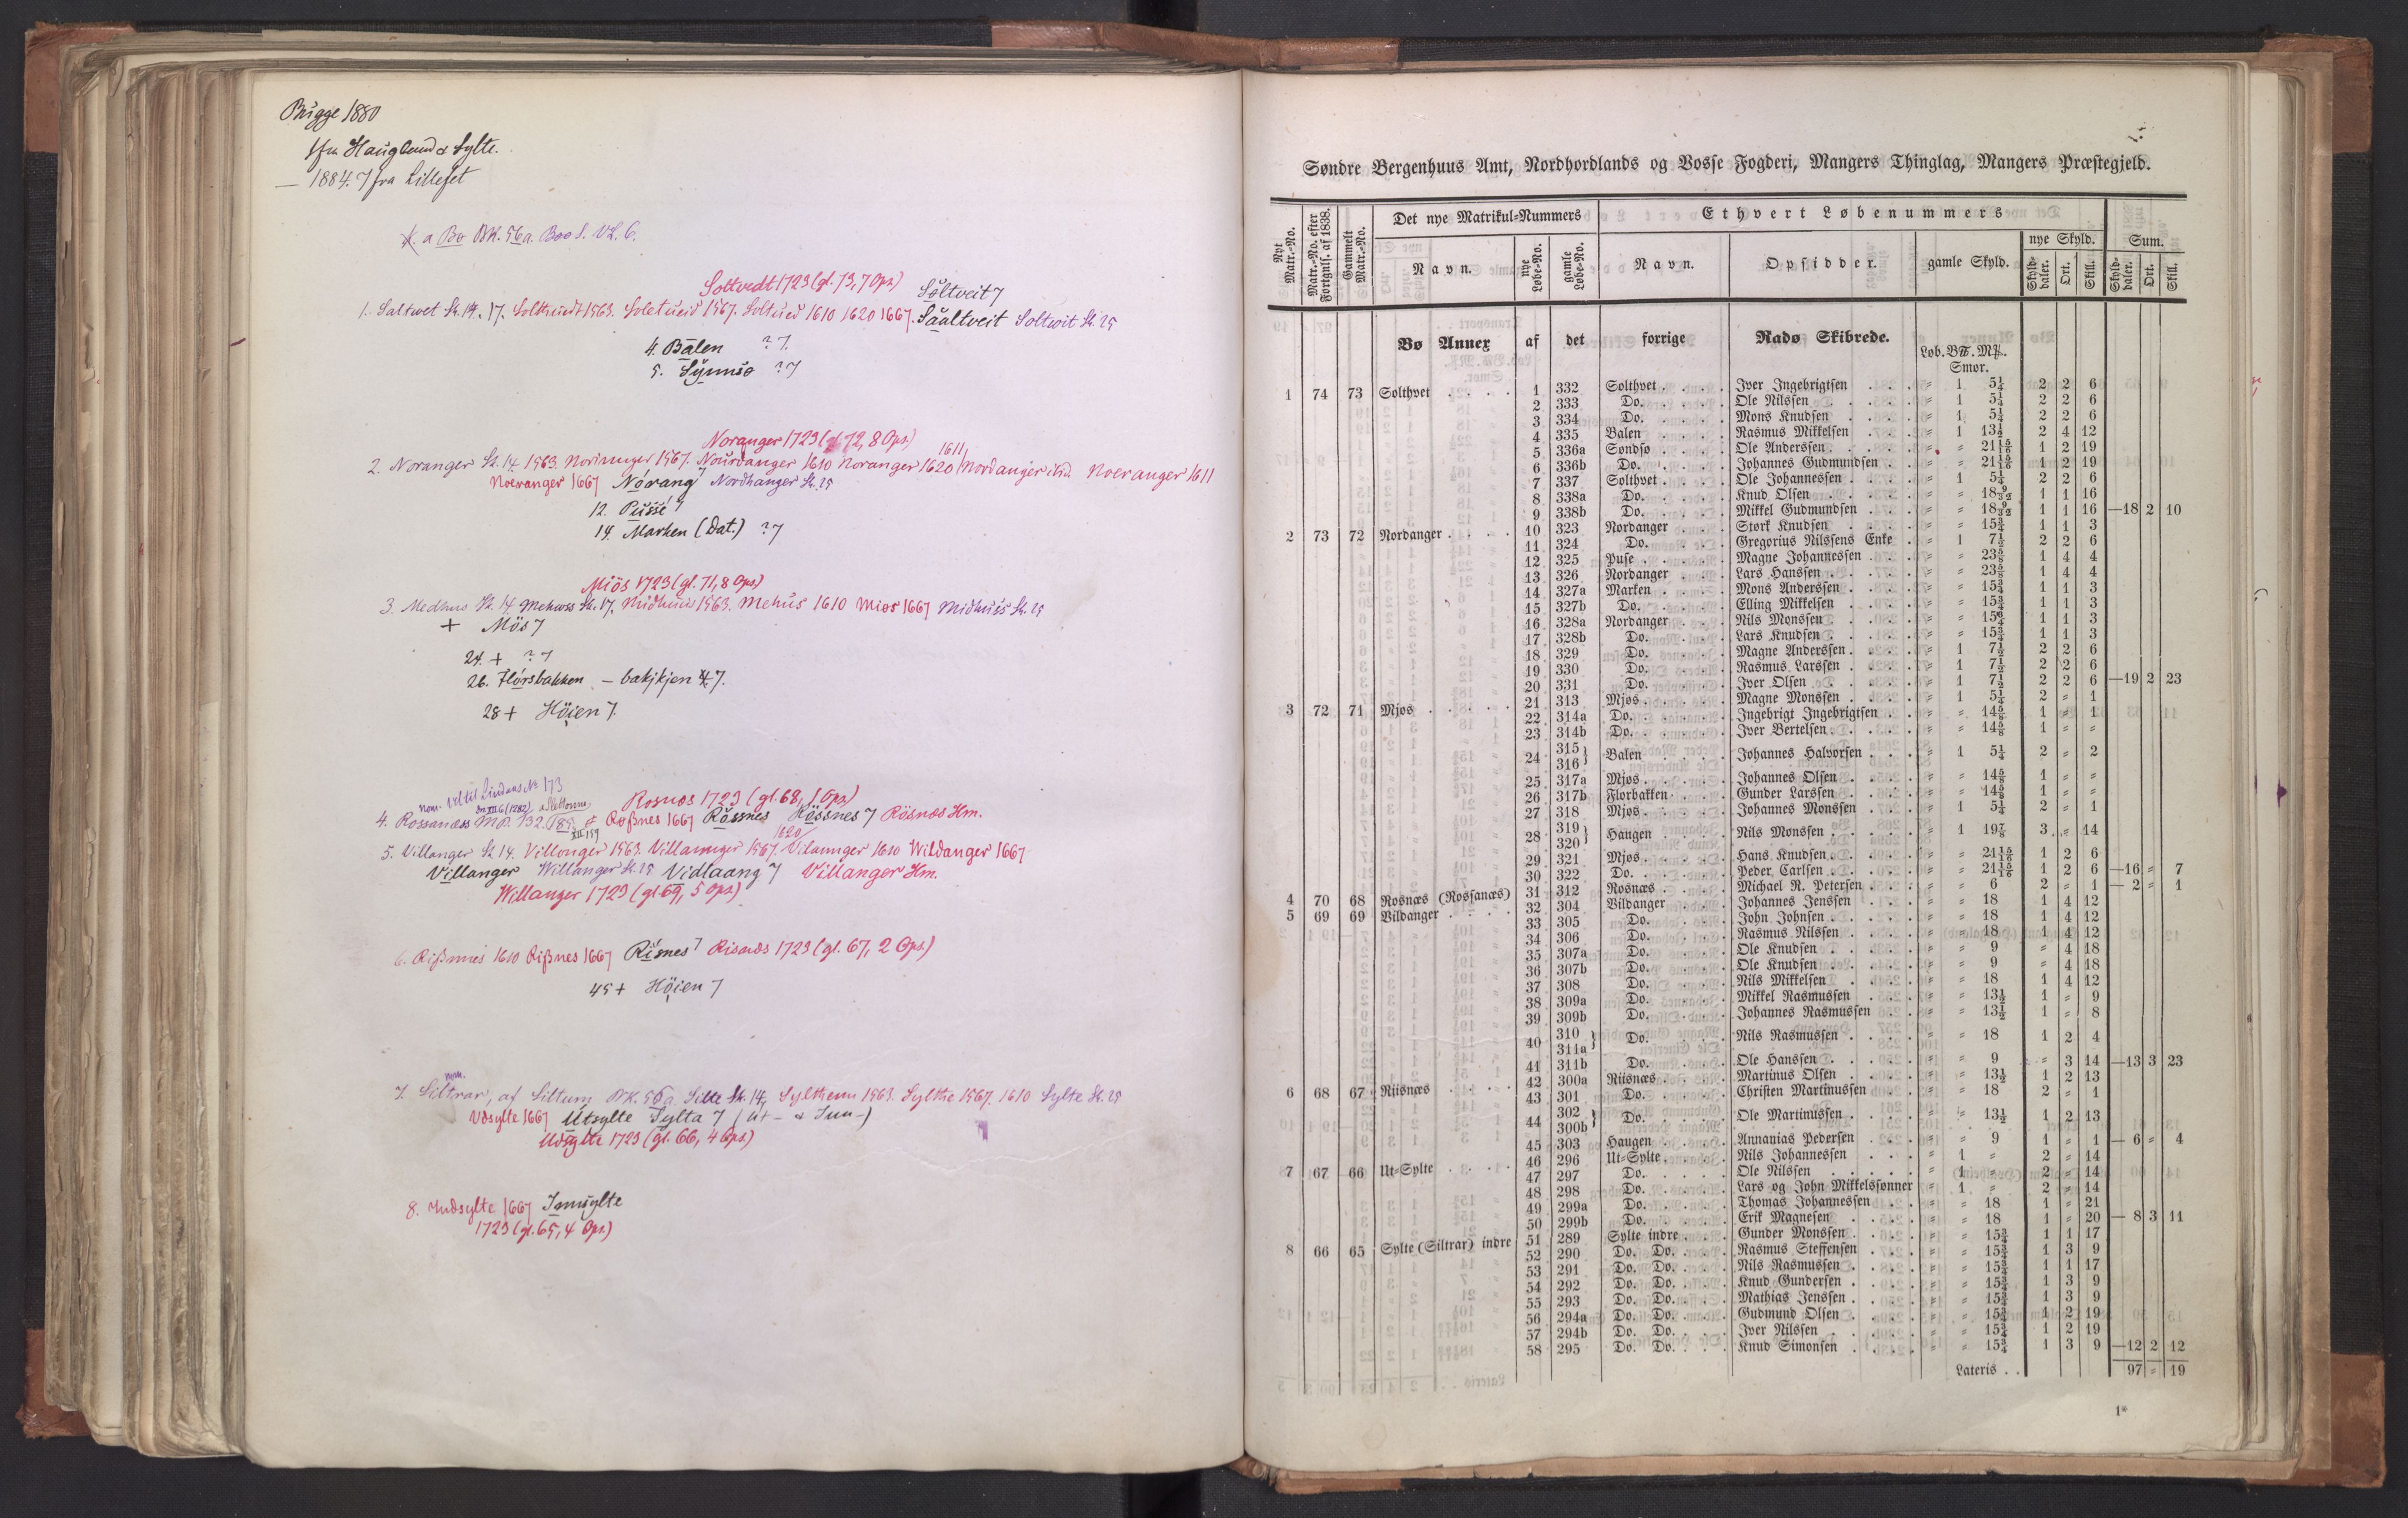 Bugge 1880
fra Haugland & Sylte.
— 1884. 7 fra Lilleset
a Bø BK. 56a. Boo S. VL. 6.
Soltvedt 1723 (gl. 73, 7 Ops.) Söltveit 7
1. Saltwet St. 14. 17. 1563. 1567. 1610 1620 1667. Såaltveit Soltwit St. 25
4. Bālen ? 7.
5. ? 7
Noranger 1723 (gl. 72, 8 Ops)
1611
2. Noranger St. 14 1563. 1567. Nourdanger 1610 Noranger 1620 Nordanger Noeranger 1611
Noeranger 1667 Nórang 7 Nordhanger St. 25
12. Pusse 7
14. Marken (Dat.) ? 7
Miös 1723 (gl. 71, 8 Ops)
3. Medhus St. 14 Mehwss St. 17. 1563. Mehus 1610 Mios 1667 Midhuss St. 25
+ Mös 7
24. + ? 7
26. Flórsbakken – bakjkjen 7.
28 + Höien 7.
Rosnæs 1723 (gl. 68, 1 Ops)
4. Rossanæss MP. 132. Roßnes 1667 Rössnes Rössnes 7 Rösnæs Hm.
5. Villanger St. 14. Villonger 1563. 1567. 1610 Wildanger 1667
Villanger Willanger St. 25 Vidlaang 7 Villanger Hm.
Willanger 1723 (gl 69, 5 Ops)
6. 1610 Rißnes 1667 Risnes 7 Risnæs 1723 (gl. 67, 2 Ops)
45 + Höien 7
7. Siltrar, af Siltum BK. 56a. St. 14, 1563. Sylthe 1567. 1610 Sylte St. 25
Vdsylte 1667 Utsylte Sylta 7 (Ut- & Inn-)
Udsylte 1723 (gl. 66, 4 Ops.)
8. Indsylte 1667 Innsylte
1723 (gl. 65, 4 Ops.)
Søndre Bergenhuus Amt, Nordhordlands og Vosse Fogderi, Mangers Thinglag, Mangers Præstegjeld.
Nyt Matr.-No. Matr.-No. efter Fortgnls. af 1838. Gammelt Matr.-No. Det nye Matrikul-Nummers Ethvert Løbenummers
Navn. nye Løbe-No. gamle Løbe-No. Navn. Opsidder. gamle Skyld. nye Skyld. Sum.
Skylddaler. Ort. Skill. Skylddaler. Ort. Skill.
Bø Annex af det forrige Radø Skibrede. Løb. B℔. M℔.
Smør.
1 74 73 Solthvet 1 332 Solthvet Iver Ingebrigtsen = 1 5¼ 2 2 6
2 333 Do. Ole Nilssen = 1 5¼ 2 2 6
3 334 Do. Mons Knudsen = 1 5¼ 2 2 6
4 335 Balen Rasmus Mikkelsen = 1 13½ 2 4 12
5 336a Søndsø Ole Anderssen = = 21 15/16 1 2 19
6 336b Do. Johannes Gudmundsen = = 21 15/16 1 2 19
7 337 Solthvet Ole Johannessen = 1 5¼ 2 2 6
8 338a Do. Knud Olsen = = 18 9/32 1 1 16
9 338b Do. Mikkel Gudmundsen = = 18 9/32 1 1 16 —18 2 10
2 73 72 Nordanger 10 323 Nordanger Størk Knudsen = = 15¾ 1 1 3
11 324 Do. Gregorius Nilssens Enke = 1 7½ 2 2 6
12 325 Puse Magne Johannessen = = 23⅝ 1 4 4
13 326 Nordanger Lars Hanssen = = 23⅝ 1 4 4
14 327a Marken Mons Anderssen = = 15¾ 1 1 3
15 327b Do. Elling Mikkelsen = = 15¾ 1 1 3
16 328a Nordanger Nils Monssen = = 15¾ 1 1 3
17 328b Do. Lars Knudsen = = 15¾ 1 1 3
18 329 Do. Magne Anderssen = 1 7½ 2 2 6
19 330 Do. Rasmus Larssen = 1 7½ 2 2 6
20 331 Do. Iver Olsen = 1 7½ 2 2 6 —19 2 23
3 72 71 Mjøs 21 313 Mjøs Magne Monssen = 1 5¼ 2 = 1
22 314a Do. Ingebrigt Ingebrigtsen = = 14⅝ 1 = 1
23 314b Do. Iver Bertelsen = = 14⅝ 1 = =
24 315 316 Balen Johannes Halvorsen = 1 5¼ 2 = 2
25 317a Mjøs Johannes Olsen = = 14⅝ 1 = =
26 317b Florbakken Gunder Larssen = = 14⅝ 1 = =
27 318 Mjøs Johannes Monssen = 1 5¼ 2 = 1
28 319 320 Haugen Nils Monssen = 1 19⅞ 3 = 14
29 321 Mjøs Hans Knudsen = = 21 15/16 1 2 6
30 322 Do. Peder Carlsen = = 21 15/16 1 2 6 —16 = 7
4 70 68 Rosnæs (Rossanæs) 31 312 Rosnæs Michael R. Petersen = = 6 2 = 1 — 2 = 1
5 69 69 Vildanger 32 304 Vildanger Johannes Jenssen = = 18 1 4 12
33 305 Do. John Johnsen = = 18 1 4 12
34 306 Do. Rasmus Nilssen = = 18 1 4 12
35 307a Do. Ole Knudsen = = 9 = 4 18
36 307b Do. Ole Knudsen = = 9 = 4 18
37 308 Do. Nils Mikkelsen = = 18 1 4 12
38 309a Do. Mikkel Rasmussen = = 13½ 1 = 9
39 309b Do. Johannes Rasmussen = = 13½ 1 = 8
40 310 311a Do. Nils Rasmussen = = 18 1 2 4
41 311b Do. Ole Hanssen = = 9 = 3 14 —13 3 23
6 68 67 Riisnæs 42 300a Riisnæs Martinus Olsen = = 13½ 1 2 13
43 301 Do. Christen Martinussen = = 18 2 = 1
44 302 300b Do. Ole Martinussen = = 13½ 1 2 13
45 303 Haugen Annanias Pedersen = = 9 1 = 1 — 6 = 4
7 67 66 Ut-Sylte 46 296 Ut-Sylte Nils Johannessen = 1 = 2 = 14
47 297 Do. Ole Nilssen = 1 = 2 = 14
48 298 Do. Lars og John Mikkelssønner = 1 = 2 = 14
49 299a Do. Thomas Johannessen = = 18 1 = 21
50 299b Do. Erik Magnesen = = 18 1 = 20 — 8 3 11
8 66 65 Sylte (Siltrar) indre 51 289 Sylte indre Gunder Monssen = = 15¾ 1 1 17
52 290 Do. Do. Rasmus Steffensen = = 15¾ 1 3 9
53 291 Do. Do. Nils Rasmussen = = 15¾ 1 1 17
54 292 Do. Do. Knud Gundersen = = 15¾ 1 3 9
55 293 Do. Do. Mathias Jenssen = = 15¾ 1 3 9
56 294a Do. Do. Gudmund Olsen = = 15¾ 1 2 19
57 294b Do. Do. Iver Nilssen = = 15¾ 1 2 19
58 295 Do. Do. Knud Simonsen = = 15¾ 1 3 9 —12 2 12
Lateris . . 97 = 19
1*